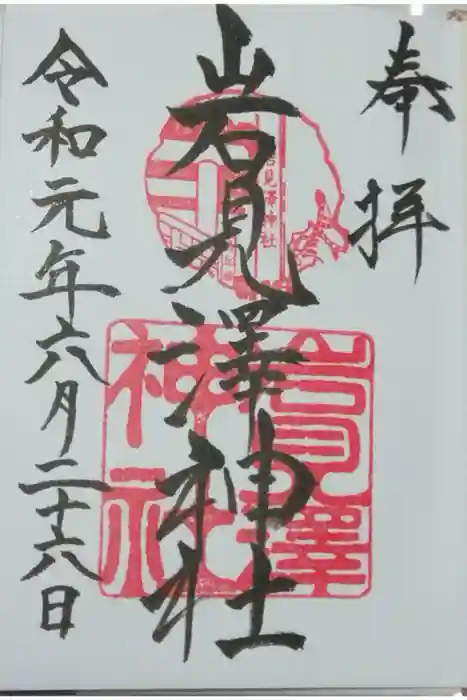 奉拝
岩見澤神社
岩見澤神社
岩見澤神社
令和元年六月二十六日